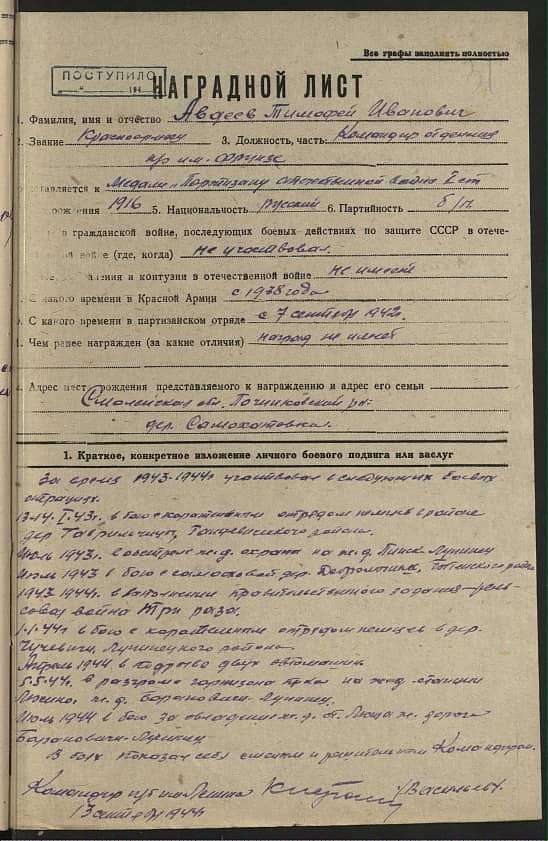 Все графы заполнять полностью
ПОСТУПИЛО
194
НАГРАДНОЙ ЛИСТ
1. Фамилия, имя и отчество Авдеев Тимофей Иванович
2. Звание Красноармеец 3. Должность, часть Командир отделения
п/о им. Фрунзе
ставляется к Медали "Партизану отечественной войны 2 ст
рождения 1916 5. Национальность русский 6. Партийность б/п
в гражданской войне, последующих боевых действиях по защите СССР в отече-
ной войне (где, когда) не участвовал.
ния и контузии в отечественной войне не имеет
С какого времени в Красной Армии с 1938 года
С какого времени в партизанском отряде с 7 сентября 1942г.
Чем ранее награжден (за какие отличия) наград не имеет
Адрес мест рождения представляемого к награждению и адрес его семьи
Смоленская обл. Починковский р-н:
дер. Самохотовка.
1. Краткое, конкретное изложение личного боевого подвига или заслуг
За время 1943-1944г участвовал в следующих боевых
операциях.
13-14. I-43г. в бою с карательным отрядом немцев в районе
дер Гаврильчицы,
Июль 1943г. в обстреле ж.д. охраны на ж.д. Пинск Лунинец
Июль 1943 в бою с самооховой дер.
1943-1944г. в выполнении правительственного задания-рель-
совая война три раза.
1-1-44г в бою с карательным отрядом немцев в дер.
Чучевичи, Лунинецкого района.
Апрель 1944 в подрыве двух автомашин.
5.5.44г. в разгроме гарнизона пр-ка на ж.д станции
ж.д. Барановичи-Лунинец.
Июль 1944 в бою за овладение ж.д. ст. Люща ж. дорога
Барановичи-Лунинец
В боях показал себя смелым и решительным Командиром.
Командир п/о им Ленина /Васильев/.
13 сентября 1944г